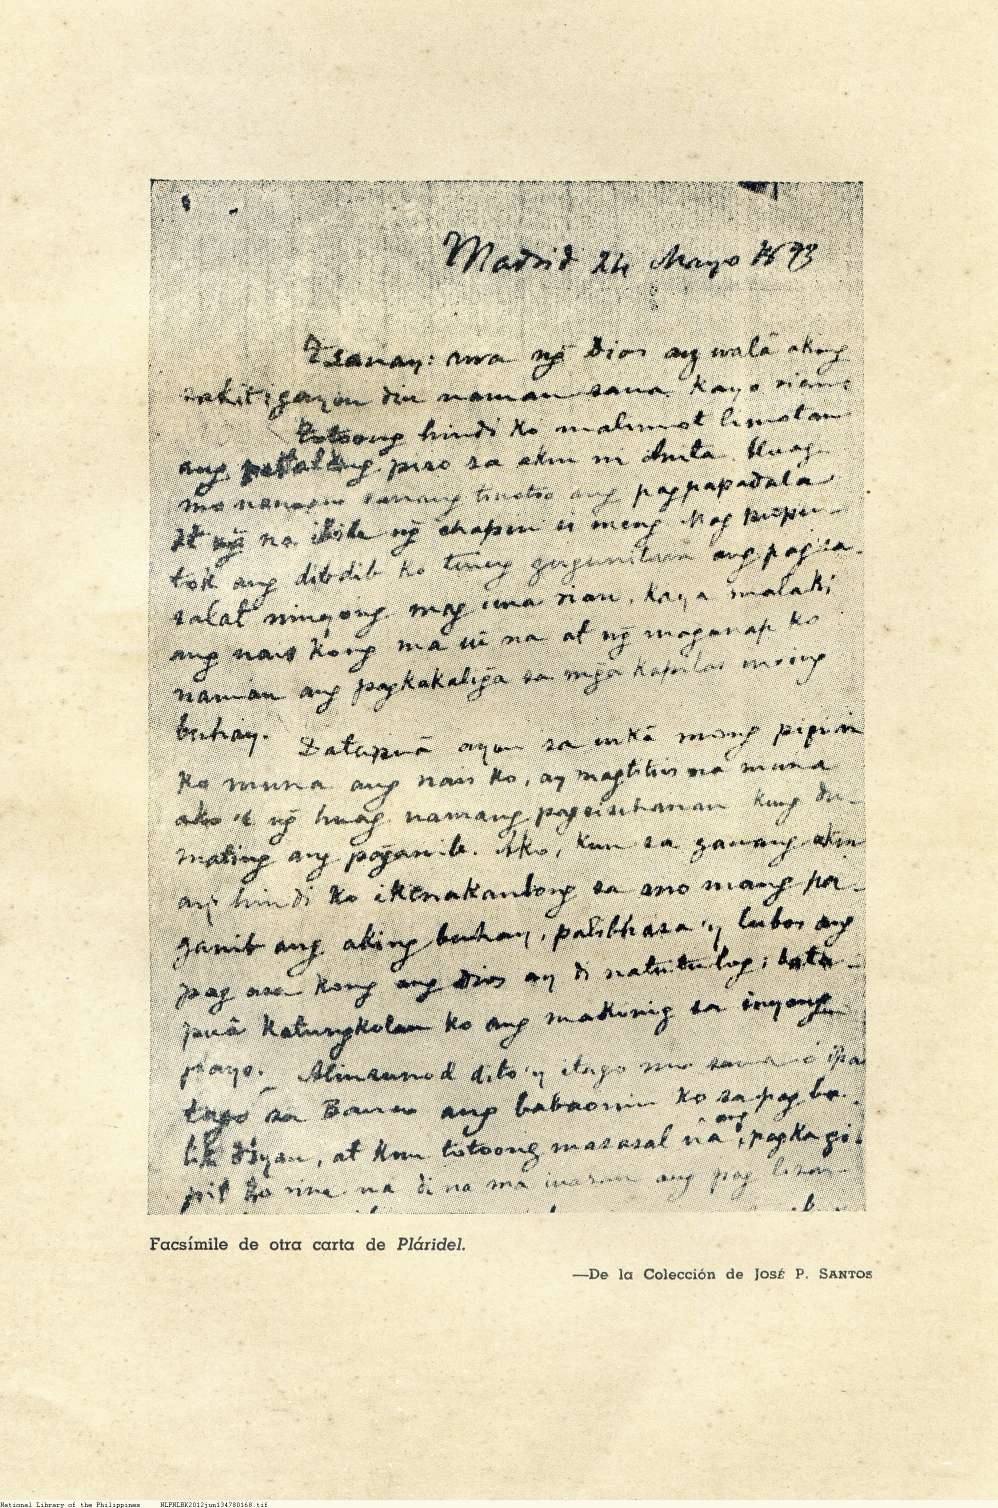 Madrid 24 Mayo 1893
Tsanay: awa ng̃ Dios ay walâ akong
sakit; gayon din naman sana kayo riang
totoong hindi ko malimot limotan
ang piso sa akin ni Anita. Huag
mo sanang ang pagpapadala
at na ng̃ chapin si neneng. Nag pupu-
tok ang dibdib ko tuing gugunitain ang pagsa-
salat ninyong mag iina rian, kaya malaki
ang nais kong ma uî na at ng̃ maganap ko
naman ang pagkakaling̃a sa mg̃a kapilas niring
buhay.
Datapuâ ayon sa wikâ mong pigilin
ko muna ang nais ko, ay magtitiis na muna
ako't ng̃ huag namang pagsisihanan kung du-
mating ang pang̃anib. Ako, kun sa ganang akin
ay hindi ko ikinakanlong sa ano mang pa-
ganib ang aking buhay, palibhasa'y lubos ang
pag asa kong ang Dios ay di natutulog; data-
puâ katungkolan ko ang makinig sa inyong
payo. Alinsunod dito'y itago mo sana ó ipa
tago sa Banco ang babaonin ko sa pag ba-
lik diyan, at kun totoong masasal na ang pagka gi-
pit ko rine na di na ma iwasan ang pag
Facsímile de otra carta de Pláridel.
—De la Colección de José P. Santos
National Library of the Philippines NLPNLBK2012jun134780168.tif